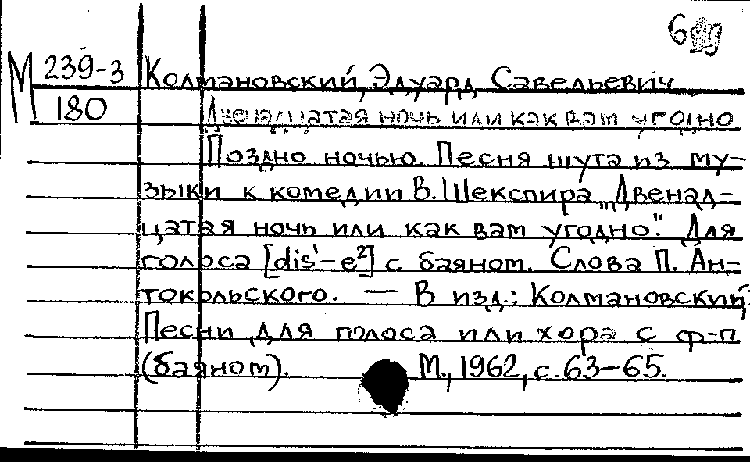 М 239-3
180
Колмановский, Эдуард Савельевич
Двенадцатая ночь или как вам угодно
Поздно ночью. Песня шута из му-
зыки к комедии В. Шекспира „Двенад-
цатая ночь или как вам угодно". Для
голоса [dis¹-e²] с баяном. Слова П. Ан-
токольского. — В изд.: Колмановский,
Песни для голоса или хора с ф-п
(баяном). М., 1962, с. 63-65.